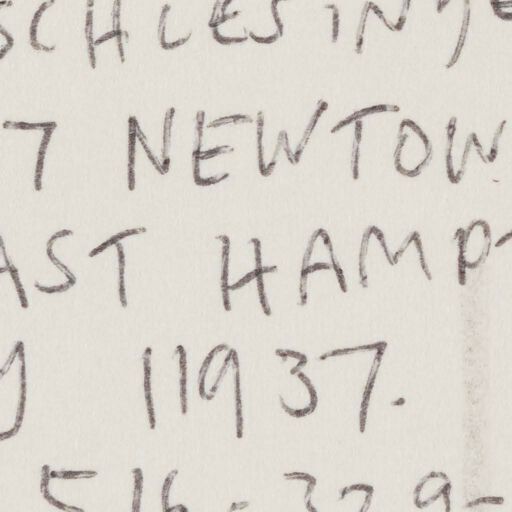 SCHLESING
7 NEWTOWN
AST HAMPT
Y 11937.
516-329-